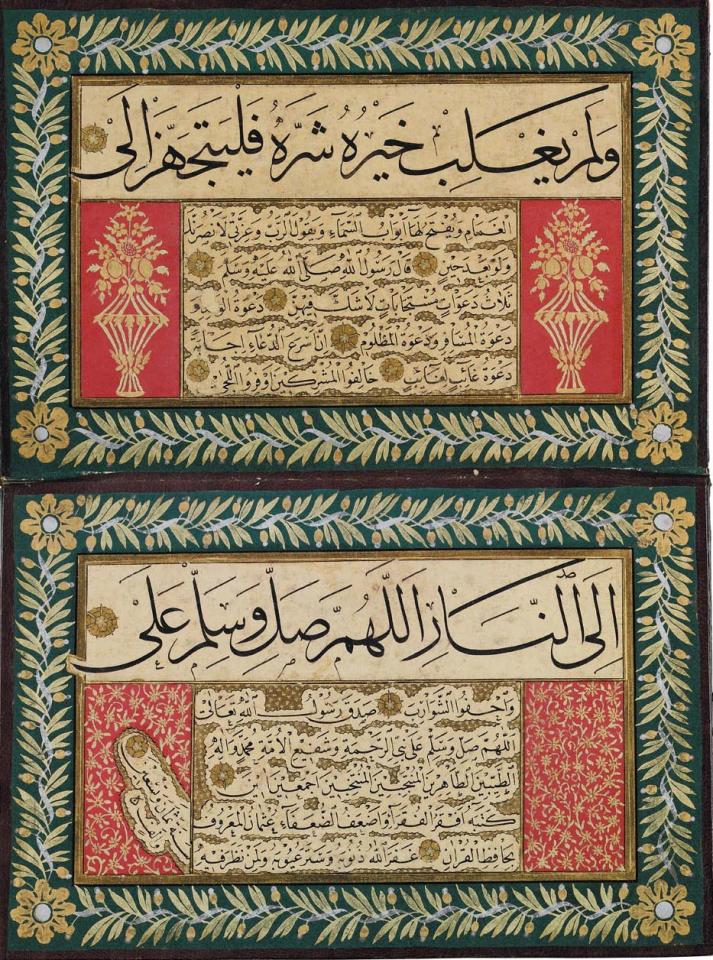 ولم يغلب خيره شره فليتجهز الى
الغمام ويفتح لها ابواب السماء ويقول الرب وعزتي لانصرنك
ولو بعد حين قال رسول الله صلى الله عليه وسلم
ثلاث دعوات مستجابات لا شك فيهن دعوة الوالد
دعوة المسافر ودعوة المظلوم ان اسرع الدعاء اجابة
دعوة غائب لغائب خالفوا المشركين اوفروا اللحى
الى النار اللهم صل وسلم على
واحفوا الشوارب صدق رسول الله تعالى
اللهم صل وسلم على نبي الرحمة وشفيع الامة محمد واله
الطيبين الطاهرين المنتجبين اجمعين
كتبه افقر الفقراء واضعف الضعفاء عثمان المعروف
بحافظ القران غفر الله ذنوبه وستر عيوبه ولمن نظر فيه